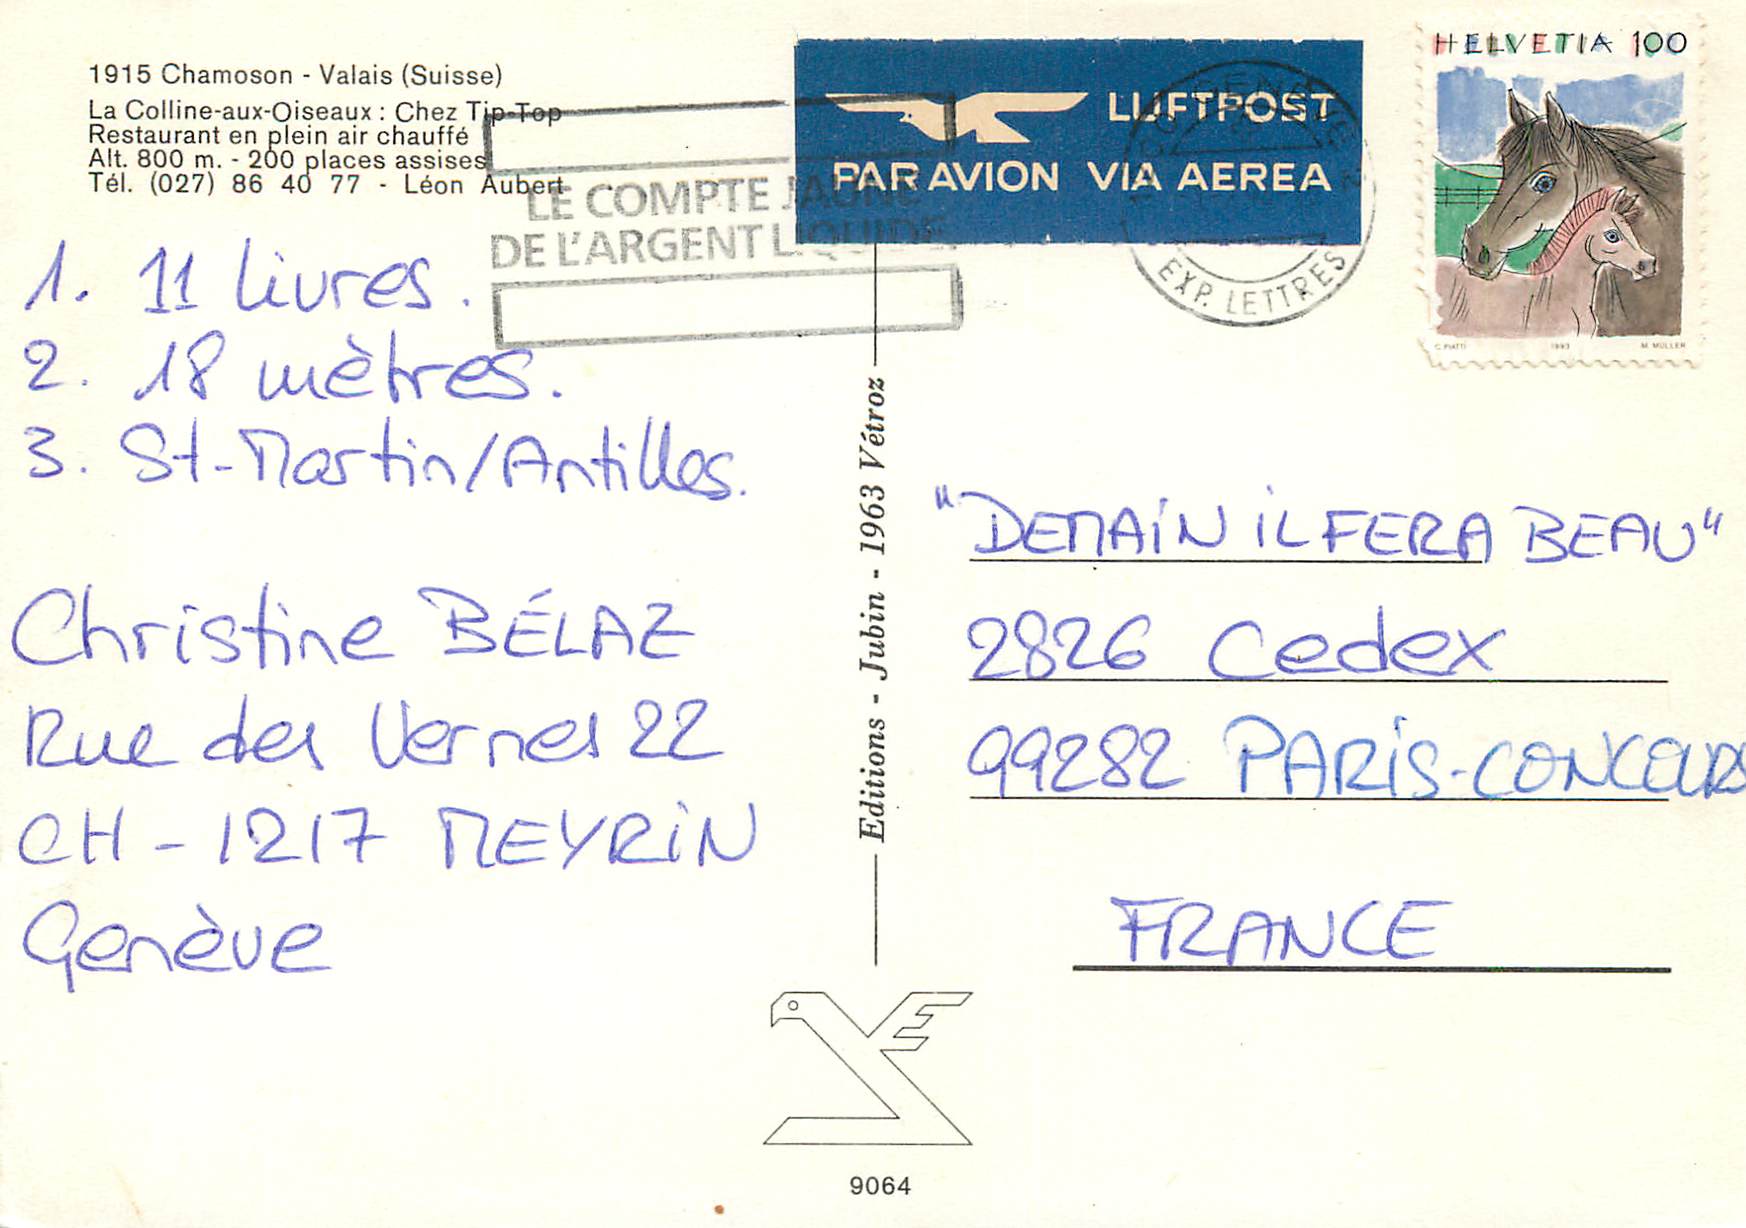 1915 Chamoson - Valais (Suisse)
La Colline-aux-Oiseaux : Chez Tip-Top
Restaurant en plein air chauffé
Alt. 800 m. - 200 places assises
Tél. (027) 86 40 77 - Léon Aubert
LE COMPTE JAUNE
DE L'ARGENT LIQUIDE
LUFTPOST
PAR AVION VIA AEREA
GENÈVE 2
EXP. LETTRES
HELVETIA 100
C. PIATTI 1993 M. MÜLLER
1. 11 livres.
2. 18 mètres.
3. St-Martin/Antilles.
Christine BÉLAZ
Rue des Vernes 22
CH - 1217 MEYRIN
Genève
Editions - Jubin - 1963 Vétroz
"DEMAIN IL FERA BEAU"
2826 Cedex
99282 PARIS-CONCOURS
FRANCE
9064